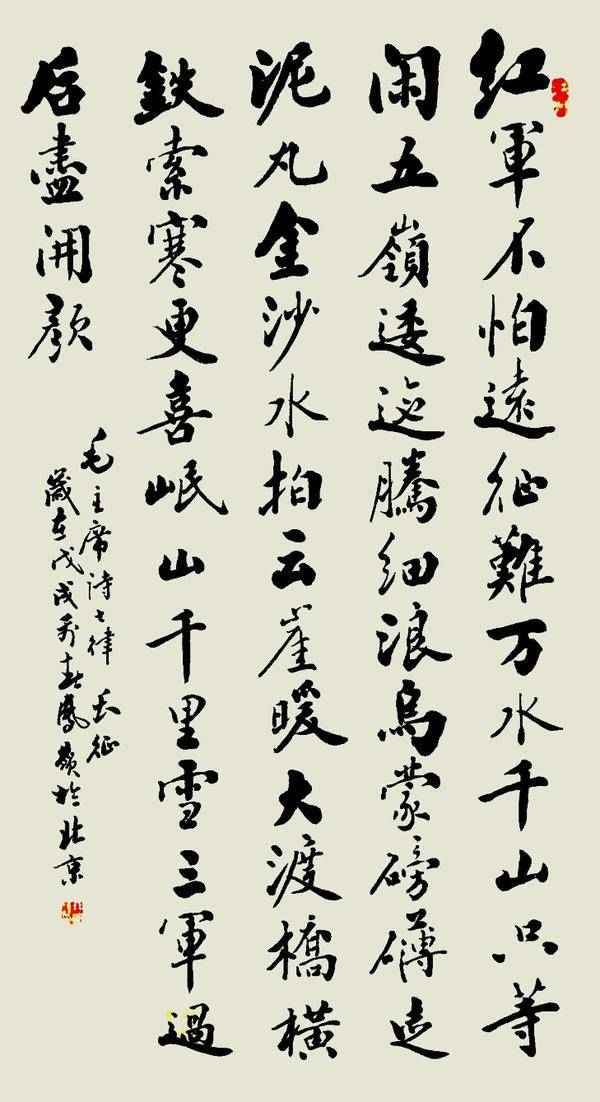 红軍不怕遠征難万水千山只等
闲五嶺逶迤騰细浪烏蒙磅礴走
泥丸金沙水拍云崖暖大渡橋横
鉄索寒更喜岷山千里雪三軍過
后盡開顏
毛主席诗七律 长征
歲在戊戌新春鳳嶺於北京